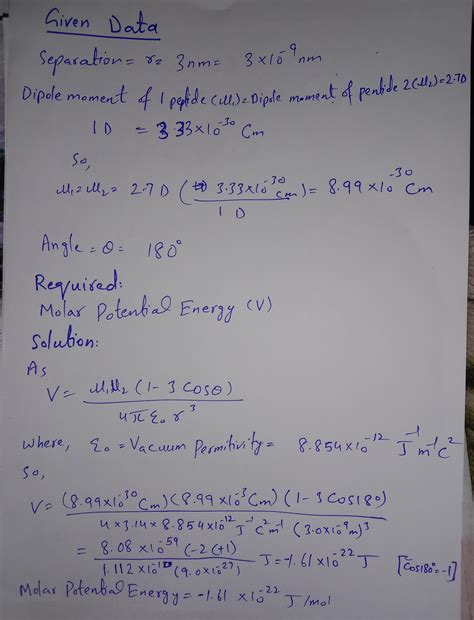 Given Data
Separation = r = 3nm = 3×10⁻⁹ nm
Dipole moment of 1 peptide (μ₁) = Dipole moment of peptide 2 (μ₂) = 2.7D
1D = 3.33×10⁻³⁰ Cm
So,
μ₁ = μ₂ = 2.7 D (3.33×10⁻³⁰ Cm / 1 D) = 8.99 ×10⁻³⁰ Cm
Angle = θ = 180°
Required:
Molar Potential Energy (V)
Solution:
As
V = μ₁μ₂ (1 - 3 Cosθ) / 4πε₀ r³
where, ε₀ = Vacuum Permitivity = 8.854×10⁻¹² J⁻¹ m⁻¹ C²
So,
V = (8.99×10⁻³⁰ Cm) (8.99 ×10⁻³ Cm) (1 - 3 Cos180) / 4 × 3.14 × 8.854×10⁻¹² J⁻¹ C² m⁻¹ (3.0×10⁻⁹ m)³
= 8.08 ×10⁻⁵⁹ (-2(+1) / 1.112 ×10⁻¹⁰ (9.0×10⁻²⁷) J = -1.61 ×10⁻²² J [Cos180° = -1]
Molar Potential Energy = -1.61 ×10⁻²² J/mol